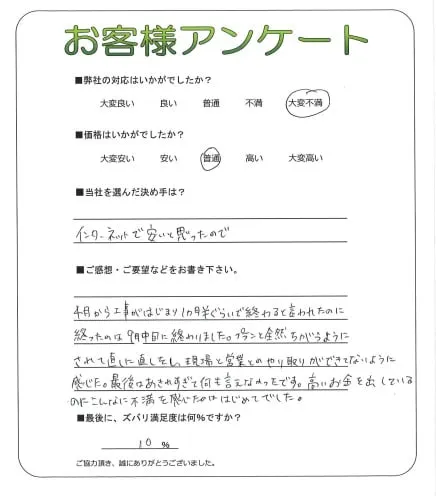 お客様アンケート
■弊社の対応はいかがでしたか？
大変良い 良い 普通 不満 大変不満
■価格はいかがでしたか？
大変安い 安い 普通 高い 大変高い
■当社を選んだ決め手は？
インターネットで安いと思ったので
■ご感想・ご要望などをお書き下さい。
月から工事がはじまり1カ月半ぐらいで終わると言われたのに
終ったのは9月中旬に終わりました。プランと全然ちがうように
されて直しに直しをし、現場と営業とのやり取りができてないように
感じた。最後はあきれすぎて何も言えなかったです。高いお金を出している
のにこんなに不満を感じたのははじめてでした。
■最後に、ズバリ満足度は何％ですか？
10 %
ご協力頂き、誠にありがとうございました。